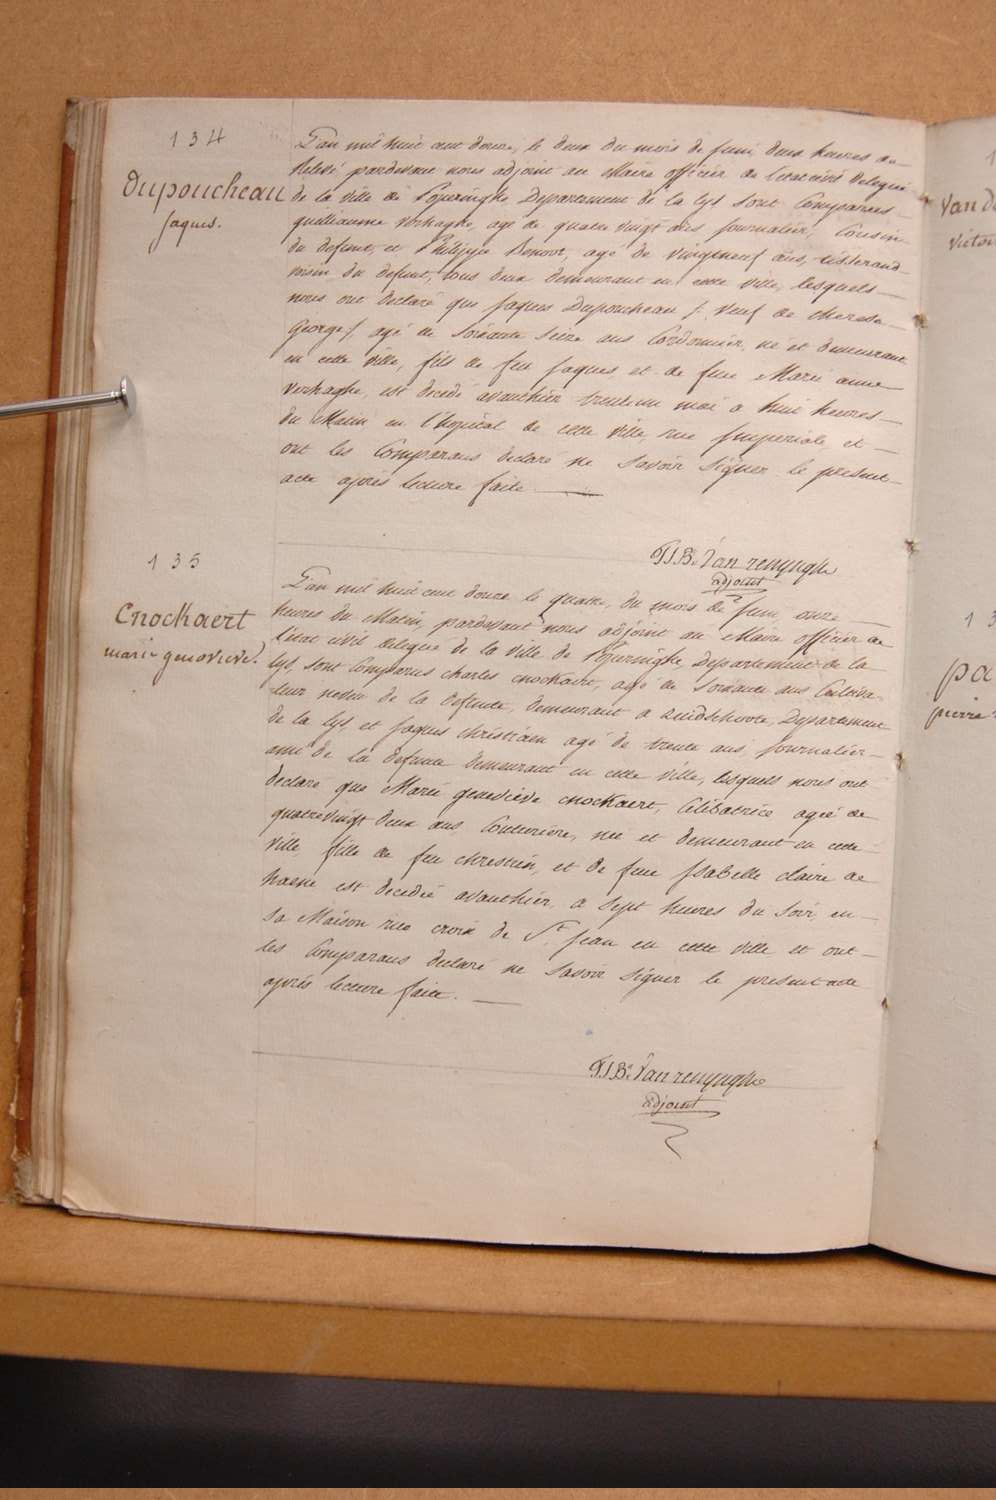 134
Dupoucheau
Jaques.
L'an mil huit cent douze, le deux du mois de Juin deux heures de
Relevé pardevant nous adjoint au Maire officier de l'etat civil delegué
de la ville de Poperinghe Departement de la lys sont Comparus
guilliaume Verhaghe, agé de quatre vingt ans Journalier, Cousin
du defunt, et Philippe Benoot, agé de vingtneuf ans, tisserand
voisin du defunt, tous deux demeurant en cette ville, lesquels
nous ont declaré que Jaques Dupoucheau /: Veuf de therese
George:/, agé de Soixante Seize ans Cordonnier, né et demeurant
en cette ville, fils de feu Jaques et de feue Marie anne
Verhaghe, est decedé avanthier trenteun mai a huit heures
du Matin en l'hopital de cette ville, rue Imperiale et
ont les Comparans declaré ne Savoir Signer le present
acte après lecture faite.
F.J.B. Van renynghe
adjoint
135
Cnockaert
marie genovieve.
L'an mil huit cent douze le quatre, du mois de Juin, onze
heures du Matin, pardevant nous adjoint au Maire officier de
l'etat civil delegué de la ville de Poperinghe, Departement de la
lys, sont Comparus charles cnockaert, agé de Soixante ans Cultiva
teur neveu de la defunte, demeurant a Zuidschoote, Departement
de la lys, et Jaques christiaen agé de trente ans, Journalier
ami de la defunte demeurant en cette ville, lesquels nous ont
declaré que Marie genevieve cnockaert, Celibatrice agée de
quatrevingt deux ans, Couturière, née et demeurant en cette
ville, fille de feu chrestien, et de feue Isabelle claire de
haene est decedée avanthier, a Sept heures du Soir, en
sa Maison rue croix de St. Jean en cette ville et ont
les Comparans declaré ne Savoir Signer le present acte
après lecture faite.
F.J.B. Van renynghe
adjoint
1
Van D
victoi
13
pa
pierre